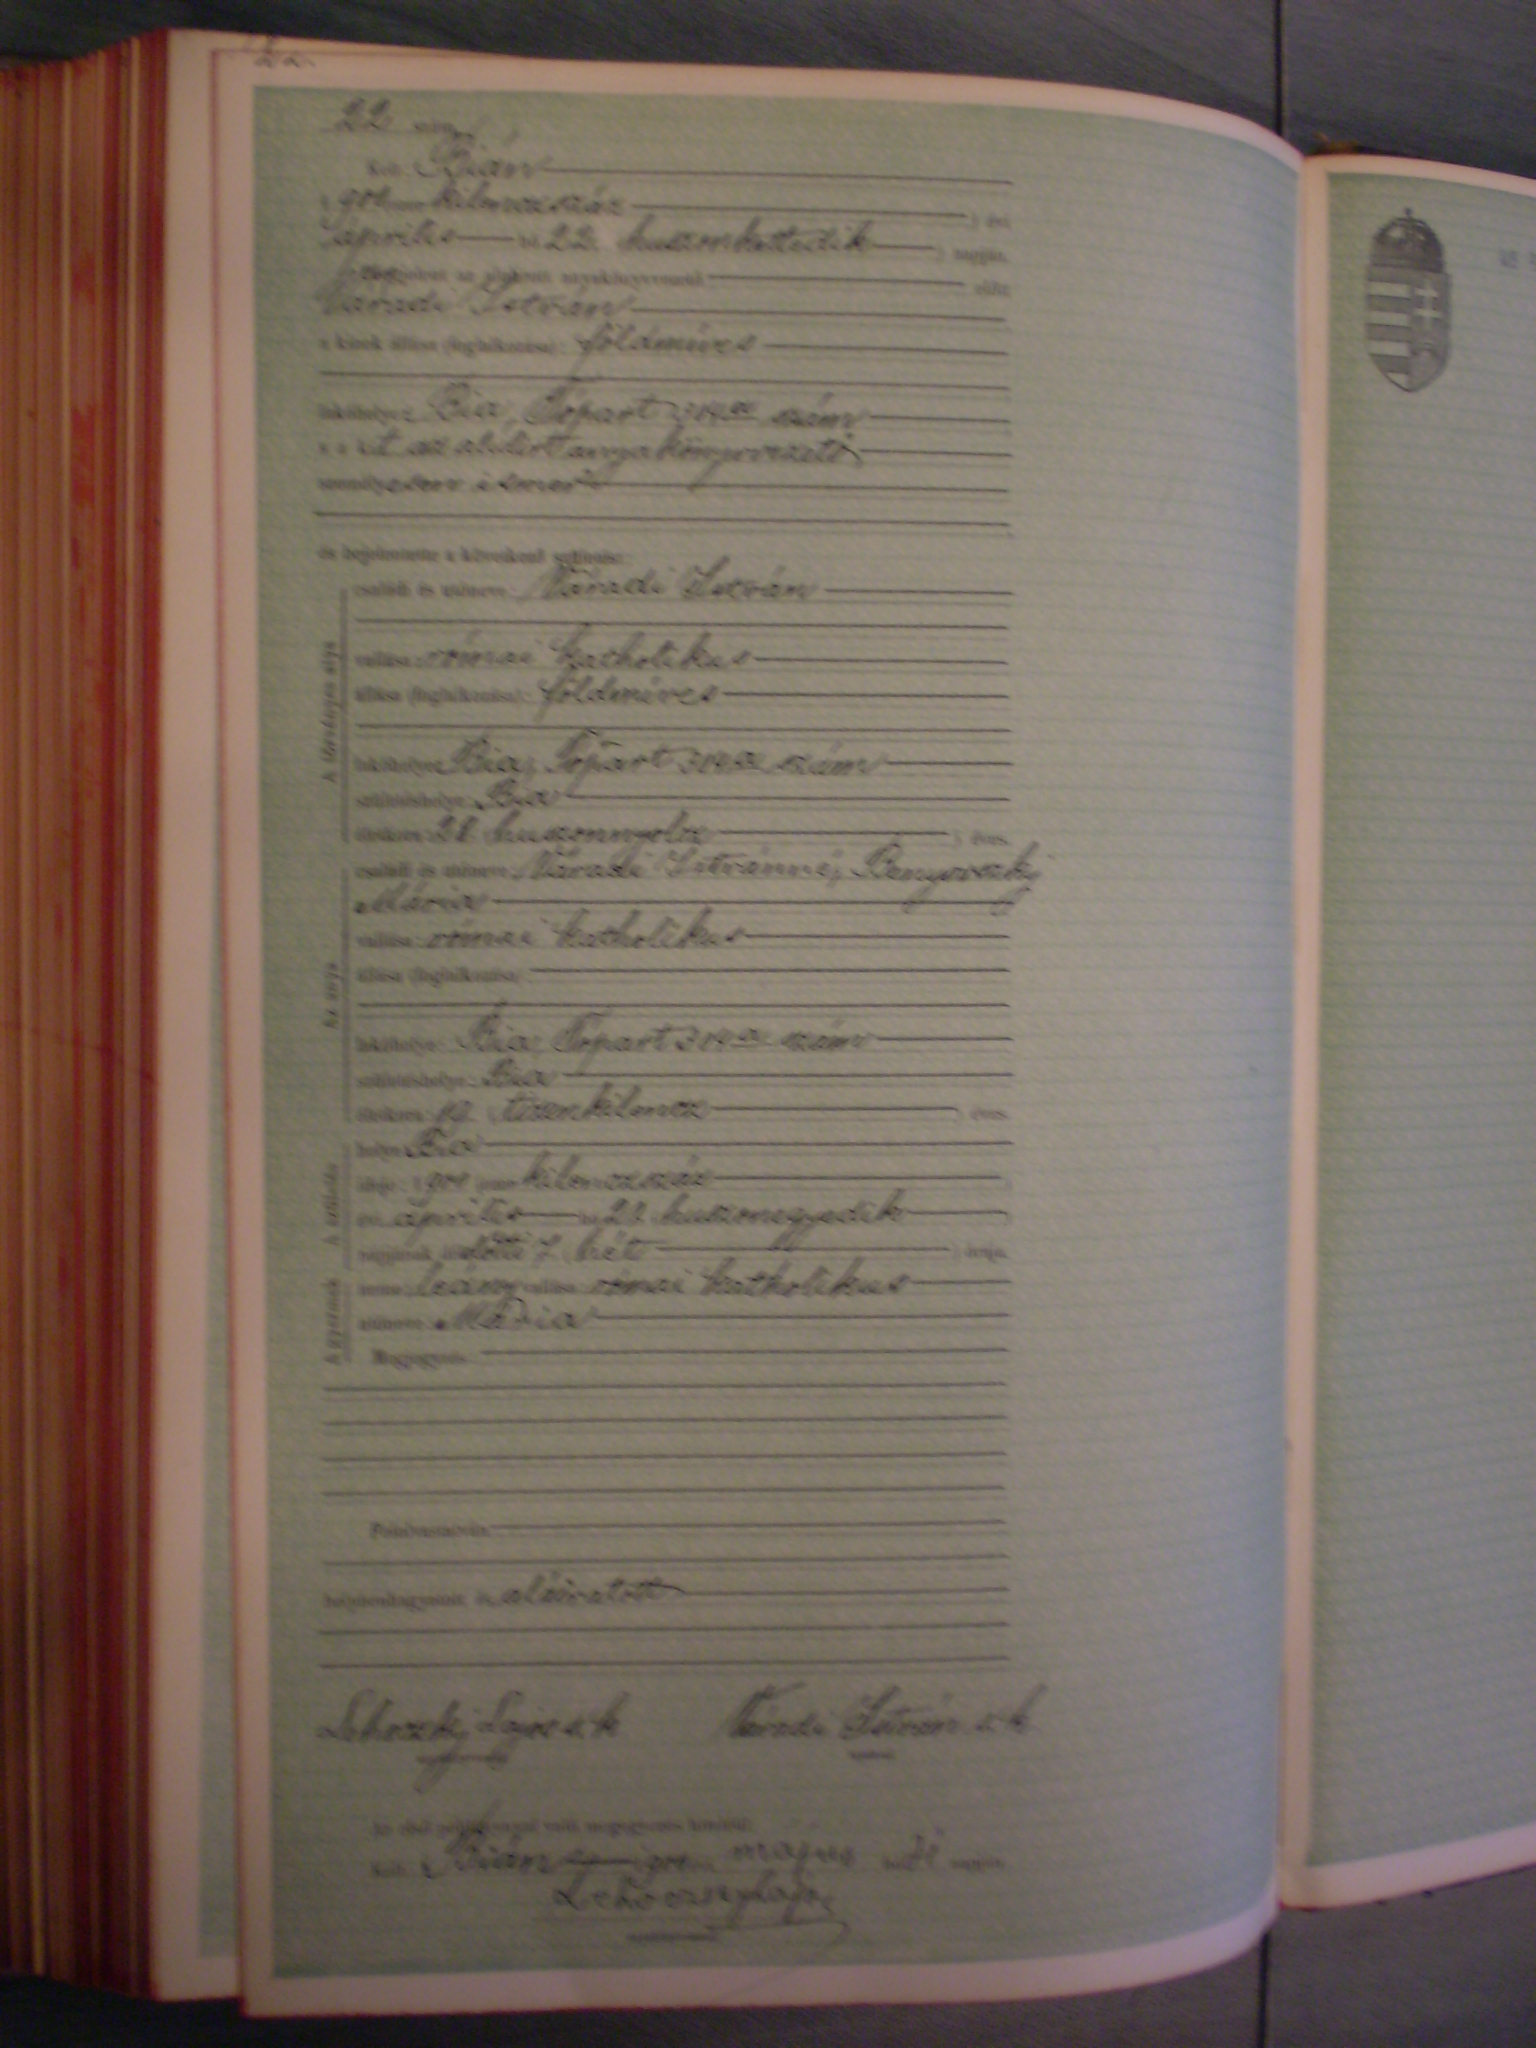 22
Kelt Bián
kilenczszáz évi
április hó 22. huszonkettedik napján,
az alulirott anyakönyvvezető előtt
Váradi István
a kinek állása (foglalkozása): földmíves
lakóhelye: Bia, Tópart szám
kit az alulirt anyakönyvvezető
személyesen ismer
és bejelentette a következő születést:
A törvényes atya
családi és utóneve: Váradi István
vallása: római katholikus
állása (foglalkozása): földmíves
lakóhelye: Bia, Tópart szám
születéshelye: Bia
életkora: 28. huszonnyolcz éves.
Az anya
családi és utóneve: Váradi Istvánné, Benyovszky
Mária
vallása: római katholikus
állása (foglalkozása):
lakóhelye: Bia, Tópart szám
születéshelye: Bia
életkora: 19. tizenkilencz éves.
A születés
helye: Bia
ideje: kilenczszáz
évi április hó 21. huszonegyedik
napjának délelőtti 7. hét órája.
A gyermek
neme: leány vallása: római katholikus
utóneve: Mária
Megjegyzés:
Felolvastatván,
helybenhagyatott és aláíratott
Lehoczky Lajos s.k. Váradi István s.k.
anyakönyvvezető
Az első példánnyal való megegyezés hitéül:
Kelt Bián május hó napján
Lehoczky Lajos
anyakönyvvezető